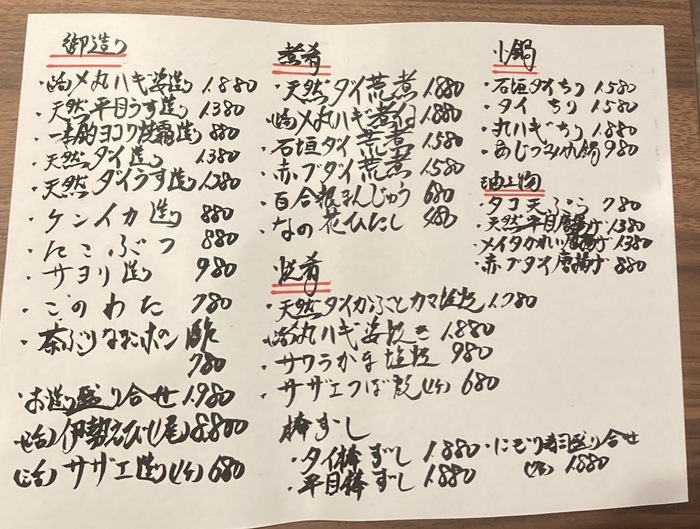 御造り
・(活)メ丸ハギ姿造り 1.880
・天然平目うす造り 1380
・一本釣ヨコワ焼霜造り 880
・天然ダイ造り 1380
・天然ダイうす造り 1380
・ケンイカ造り 880
・たこぶつ 880
・サヨリ造り 980
・このわた 780
・茶ぶりなまこポン酢
780
・お造り盛り合せ 1.980
(活)伊勢えび(1尾) 8.800
(活)サザエ造り(1ケ) 680
煮肴
・天然ダイ荒煮 1.880
(活)メ丸ハギ煮付 1.880
・石垣ダイ荒煮 1.580
・赤ブダイ荒煮 1580
・百合根まんじゅう 680
・なの花ひたし 480
焼肴
・天然ダイかぶとカマ塩焼 1.780
(活)丸ハギ姿焼き 1.880
・サワラかま塩焼 980
・サザエつぼ焼(1ケ) 680
棒ずし
・タイ棒ずし 1.880
・平目棒ずし 1.880
・にぎり寿司盛り合せ
1.880
小鍋
・石垣ダイちり 1.580
・タイちり 1.580
・丸ハギちり 1.880
・あじつみれ鍋 980
油物
・タコ天ぷら 780
・天然平目唐揚げ 1380
・メイタかれい唐揚げ 1380
・赤ブダイ唐揚げ 880